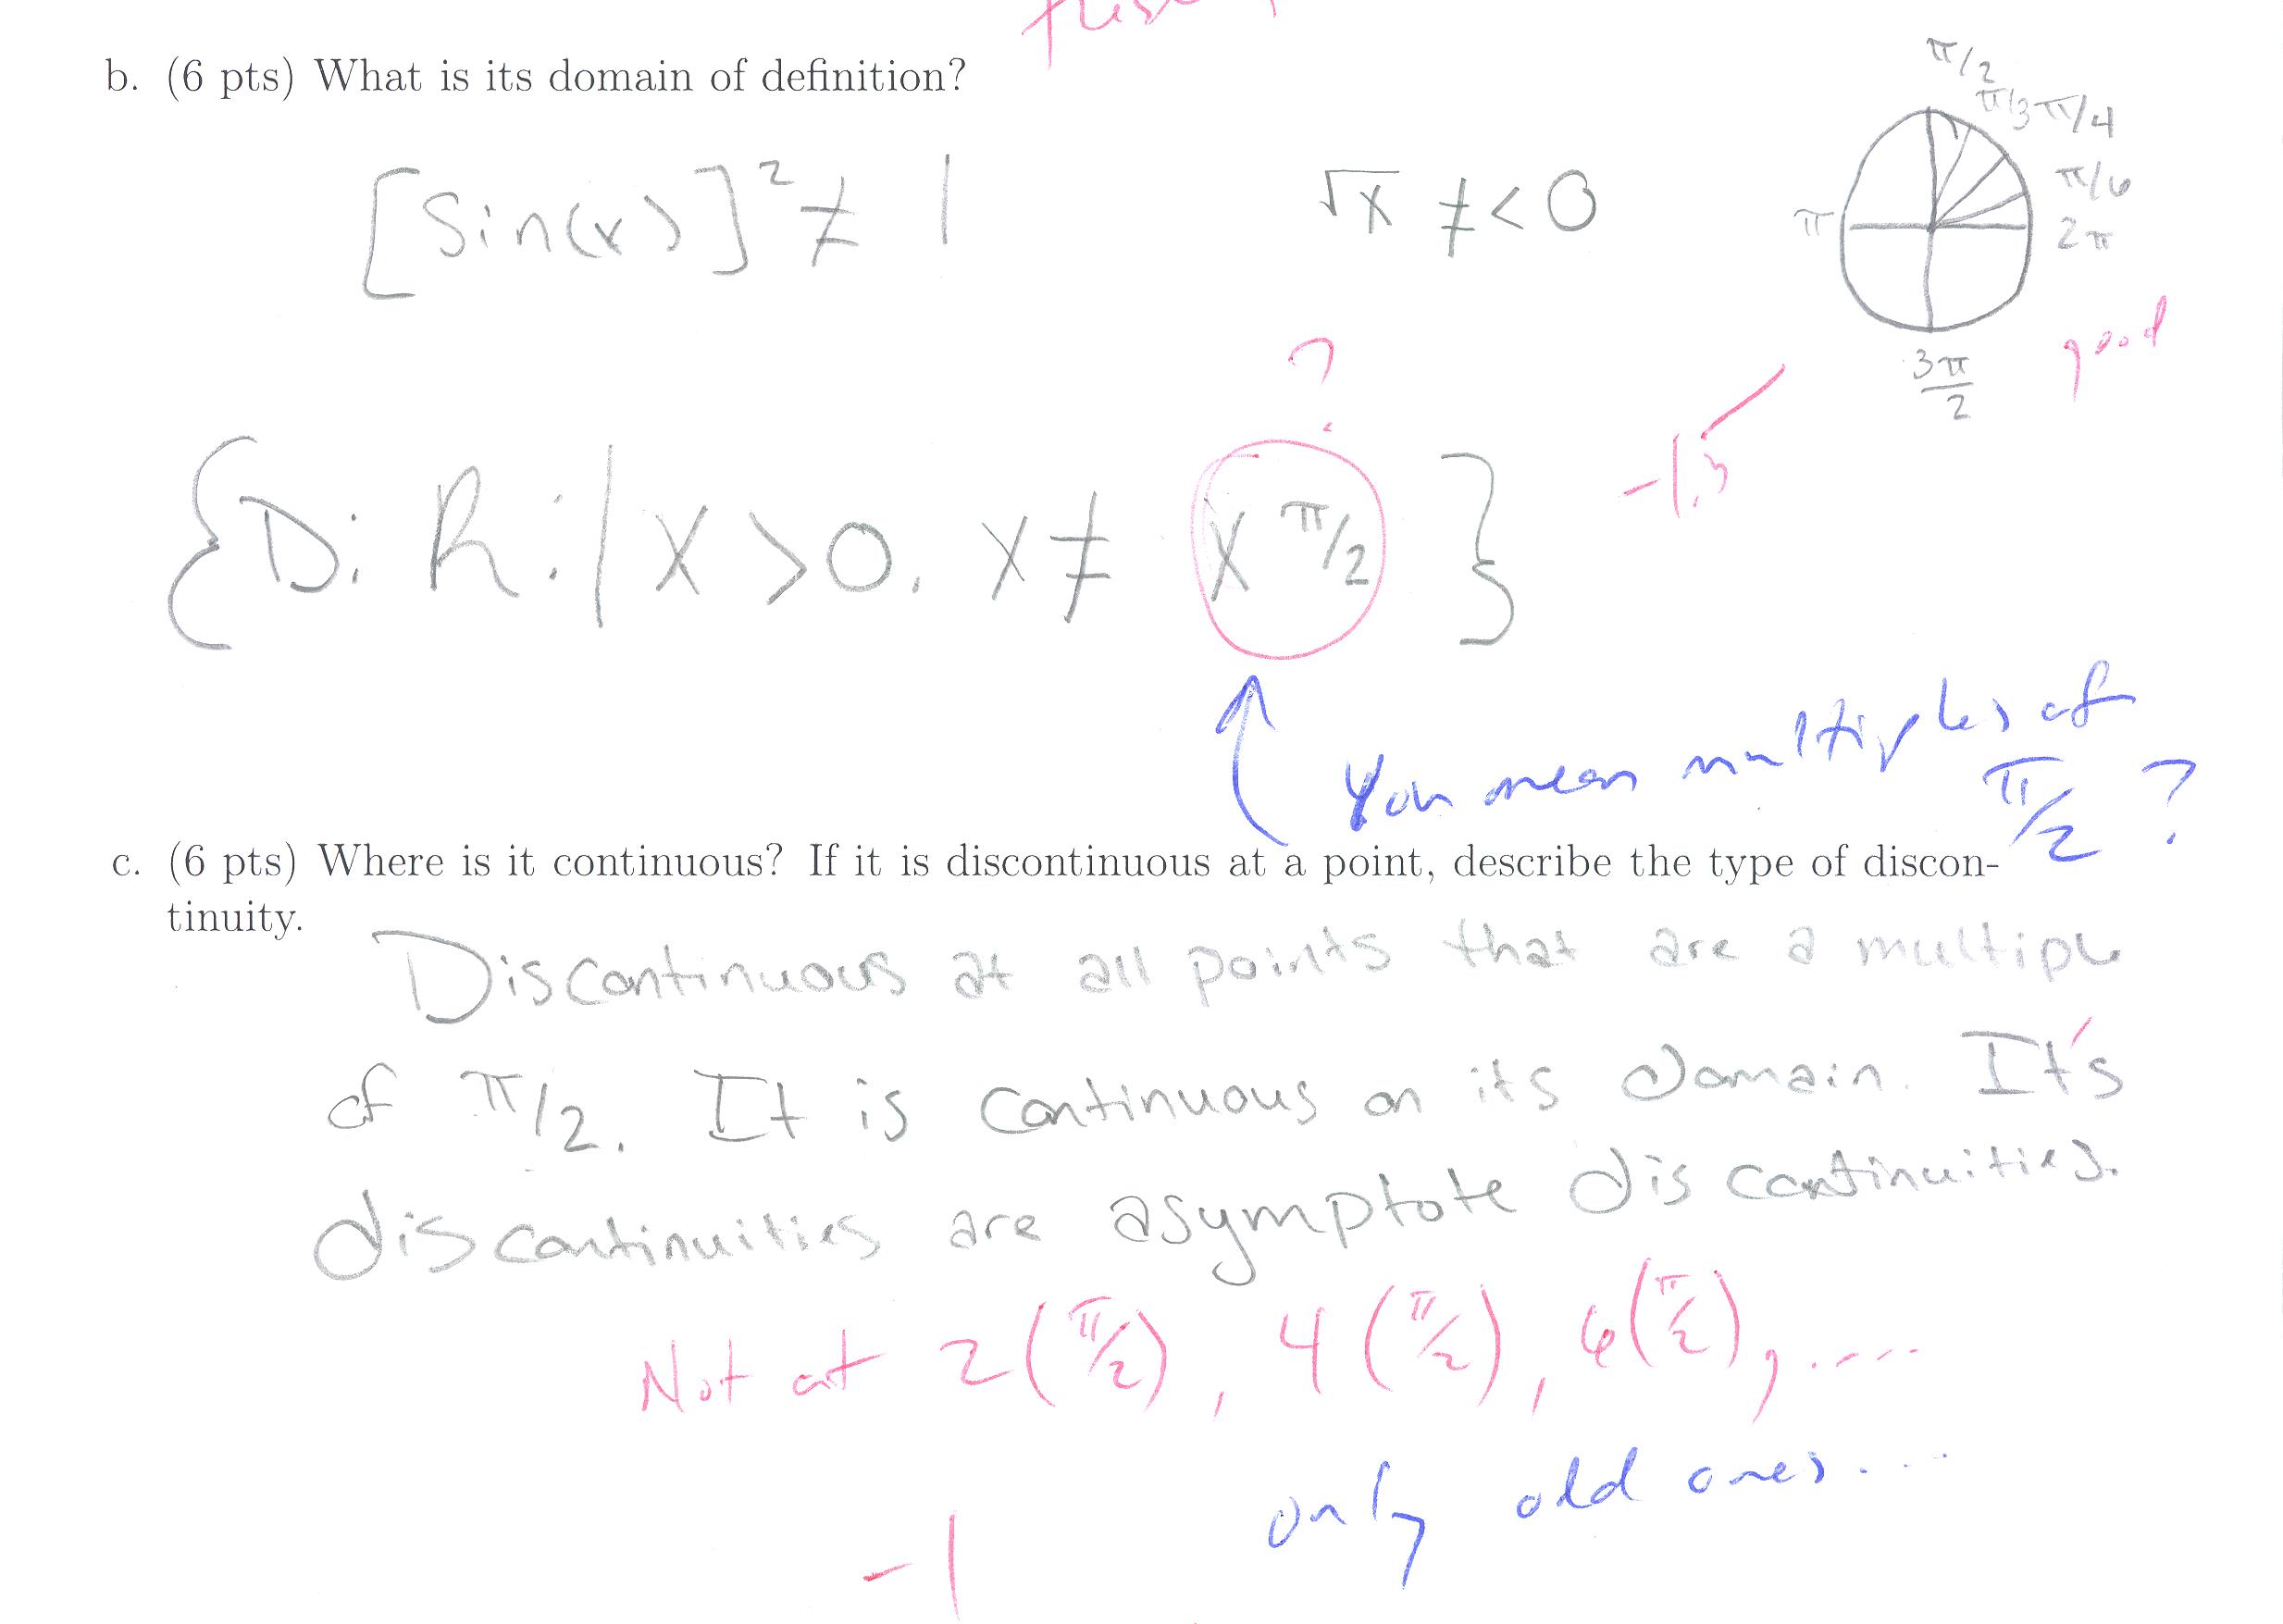 b. (6 pts) What is its domain of definition?
π/2
π/3 π/4
π/6
2π
π
3π/2
good
[Sin(x)]² ≠ 1
√x ≠ < 0
?
-1.5
{D: R: | x > 0, x ≠ x π/2 }
You mean multiples of π/2 ?
c. (6 pts) Where is it continuous? If it is discontinuous at a point, describe the type of discon-
tinuity.
Discontinuous at all points that are a multiple
of π/2. It is continuous on its domain. It's
discontinuities are asymptote discontinuities.
Not at 2(π/2), 4(π/2), 6(π/2), ....
only odd ones....
-1